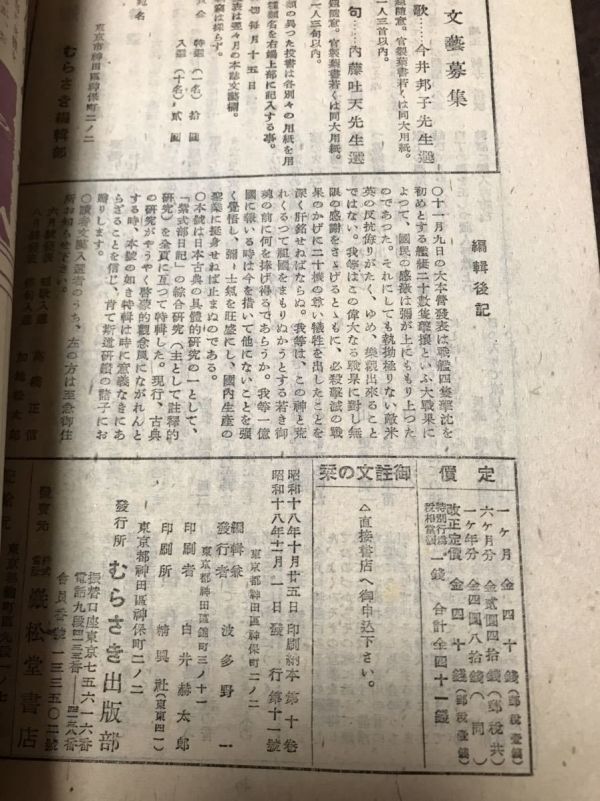 文藝募集
歌・今井邦子先生選
題隨意。官製葉書若くは同大用紙。
一人三首以内。
句・内藤吐天先生選
題隨意。官製葉書若くは同大用紙。
一人三句以内。
種類の異つた投書は各別々の用紙を用
種類名を右端上部に記入する事。
切 毎月十五日
表は翌々月の本誌文藝欄。
特選(一名) 拾圓
入選(十名) 貳圓
東京市神田區神保町二ノ二
むらさき編輯部
編輯後記
〇十一月九日の大本營發表は戰艦四隻撃沈を
初めとする艦艇二十數隻撃攘といふ大戰果に
よつて、國民の感激は彌が上にももり上つた
のであつた。それにしても執拗極りない敵米
英の反抗侮りがたく、ゆめ、樂觀出來ること
ではない。我等はこの偉大なる戰果に對し無
限の感謝をさゝげるとゝもに、必殺撃滅の戰
果のかげに二十機の尊い犧牲を出したことを
深く肝銘せねばならぬ。我等は、この神と荒
れくるつて祖國をまもりぬかうとする若き御
魂の前に何を捧げ得るであらうか。我等一億
國に報いる時は今を措いて他にないことを強
く覺悟し、彌〻士氣を旺盛にし、國内生産の
聖業に挺身せねば止まぬのである。
〇本號は日本古典の具體的研究の一として、
「紫式部日記」の綜合研究(主として註釋的
研究)を全頁に互つて特輯した。現行、古典
の研究がやうやく啓蒙的觀念風にながれんと
する時、本號の如き特輯は時に意義なきにあ
らざることを信じ、肯て斯道研鑽の諸子にお
贈りします。
〇讀者文藝入選者のうち、左の方は至急御住
所お知らせ下さい。
六月號發表 短歌入選 高橋正信
八月號發表 俳句入選
定價
一ヶ月 金四十錢(郵税壹錢)
六ヶ月分 金貳圓四拾錢(郵税共)
一ヶ年分 金四圓八拾錢(同)
改正定價 金四十錢(郵税壹錢)
特別行爲税相當額 一錢 合計金四十一錢
御註文の栞
△直接書店へ御申込下さい。
昭和十八年十月廿五日印刷納本 第十卷
昭和十八年十一月一日發行 第十一號
東京都神田區神保町二ノ二
編輯兼發行者 波多野一
東京都神田區錦町三ノ十一
印刷者 白井赫太郎
印刷所 精興社(東東四一)
東京都神田區神保町二ノ二
發行所 むらさき出版部
振替口座東京七五六一六番
電話九段
會員番號一三三五〇二號
發賣元 株式會社 巖松堂書店